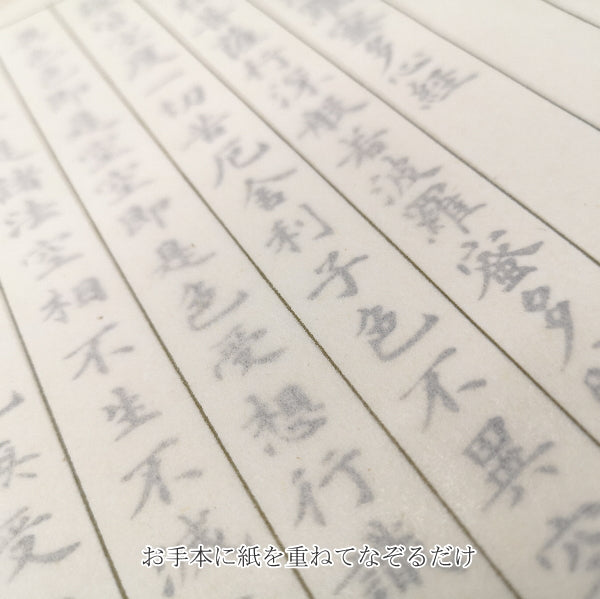 蜜多心経
薩行深般若波羅蜜多
空度一切苦厄舎利子色不異空
色即是空空即是色受想行識
是諸法空相不生不滅
無受
お手本に紙を重ねてなぞるだけ